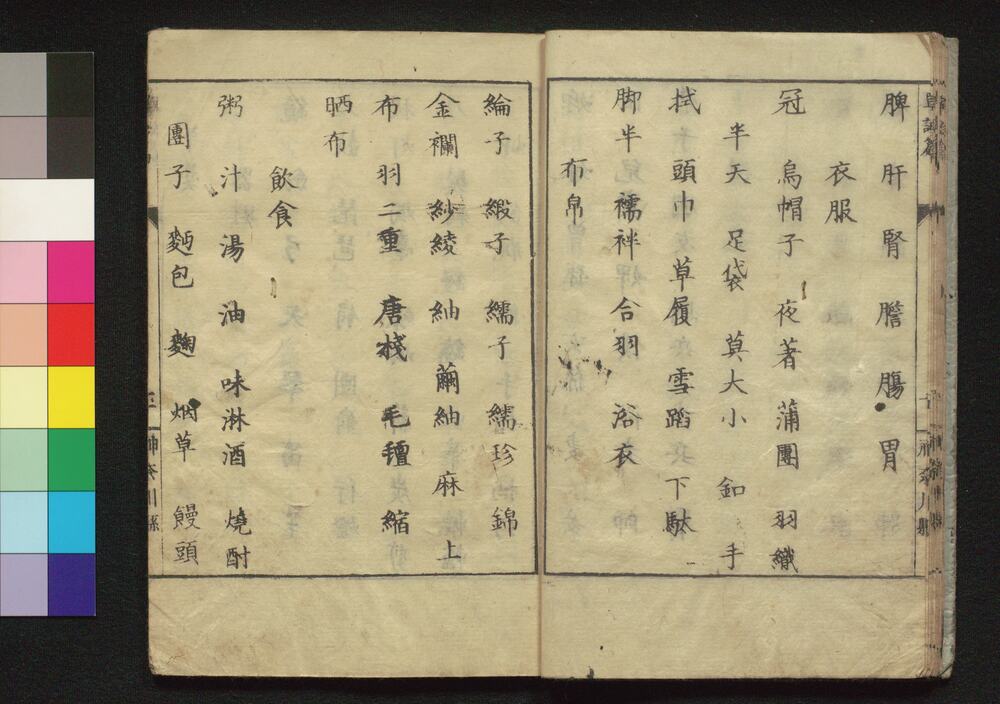 脾 肝 腎 膽 膓 胃
衣服
冠 烏帽子 夜著 蒲團 羽織
半天 足袋 莫大小 釦 手
拭 頭巾 草履 雪蹈 下駄
脚半 襦袢 合羽 浴衣
布帛
綸子 緞子 繻子 繻珍 錦
金襴 紗綾 紬 繭紬 麻 上
布 羽二重 唐棧 毛氊 縮
晒布
飲食
粥 汁 湯 油 味淋酒 燒酎
團子 麪包 麹 烟草 饅頭
神奈川縣